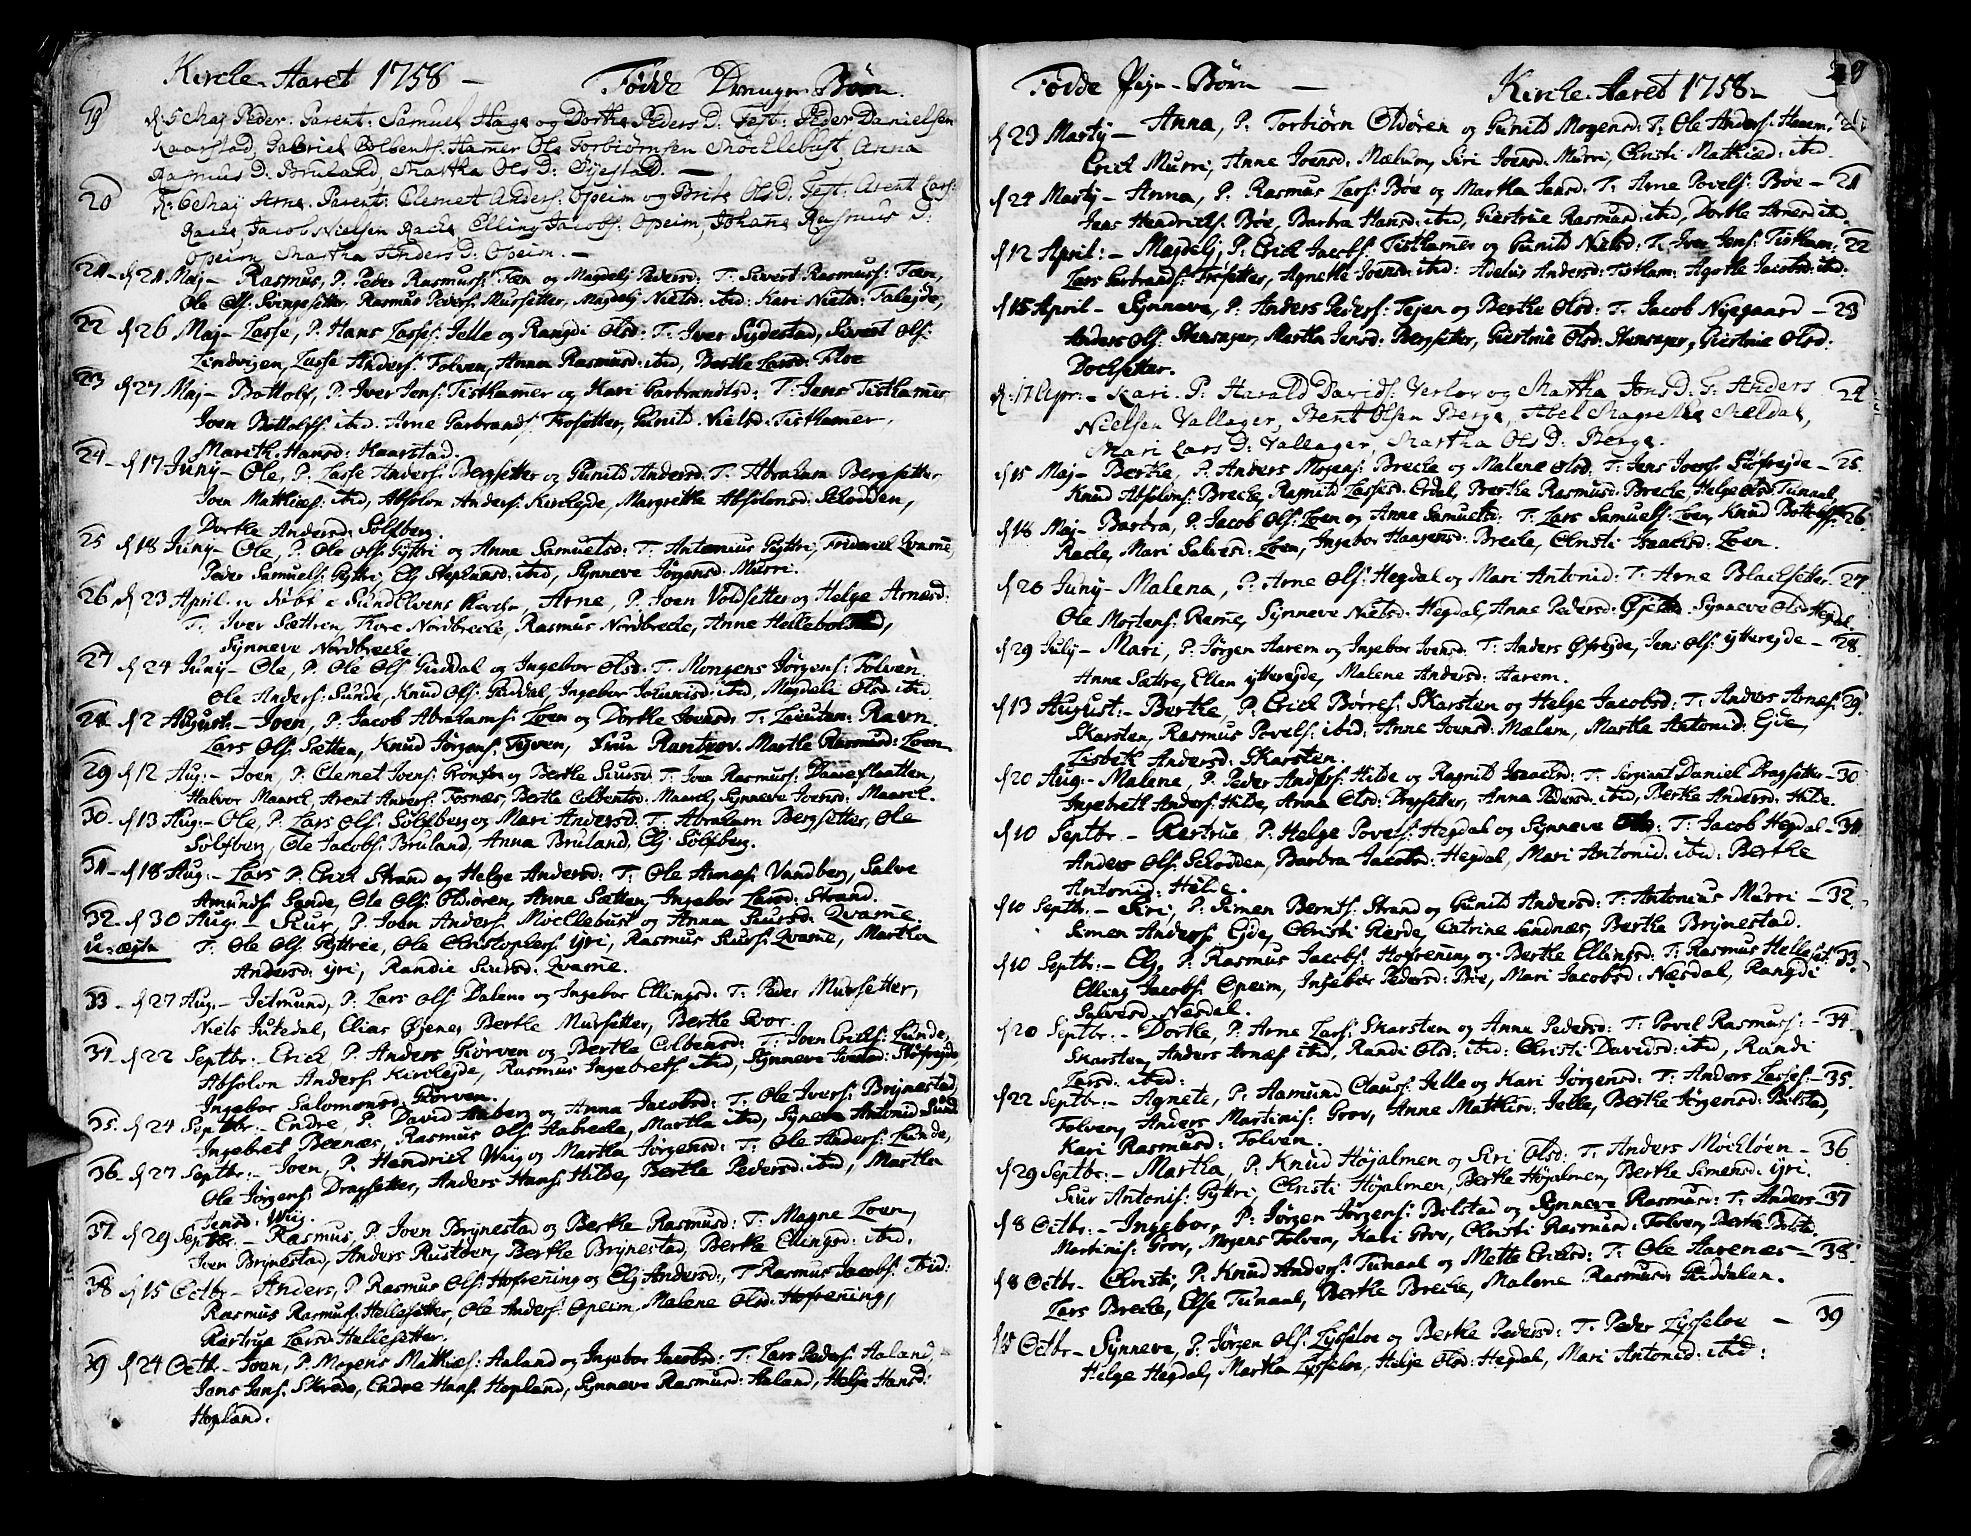 Kircke-Aaret 1758 — Fødde Drenge-Børn.
19 d: 5 Maj Peder. Parent: Samuel Hage og Dorthe Peders D: Test: Peder Danielsen
Kaarstad, Gabriel Colbents: Hamer Ole Torbiørnsen Møcklebust, Arena
Rasmus D. Bruland, Martha Ols D: Øyestad. —
20 d: 6 Maj Arne. Parent: Clemet Anders: Opeim og Brite Ols D: Test. Arent Lars:
Racke, Jacob Nielsen Racke Elling Jacobs: Opeim, Johana Rasmus D:
Opeim Martha Anders D. Opeim. —
21 — d 21 Maj — Rasmus, P: Peder Rasmuss: Tæn og Magdelj Pedersd: T: Sivert Rasmuss: Tæn,
Ole Ols: Svengesetter, Rasmus Peders: Mursetter, Magdelj Nielsd: ibid: Kari Nielsd: Falejde,
22 d 26 Maj — Lasse, P: Hans Lasses: Jelle og Rangdi Olsd: T: Iver Sijdestad, Sivert Ols:
Lindvigen, Lasse Anders: Folven, Anna Rasmusd: ibid, Berthe Larsd: Floe
23 d 27 Maj — Bottolf, P: Iver Jens: Tisthamer og Kari Garbrandtsd: T: Jens Tisthamer
Joen Bottolfs: ibid. Arne Garbrands: Frosetter, Gunild Nielsd: Tisthamer,
Mareth Hansd: Kaarstad.
24 — d 17 Juny — Ole, P. Lasse Anders: Bergsetter og Gunild Andersd: T: Abraham Bergsetter
Joen Mathies: ibid, Absolon Anders: Kirckejde, Margrethe Absolonsd: Skodden,
Dorthe Andersd: Solfberg.
25 d 18 Juny — Ole, P. Ole Ols: Gyttri og Anne Samuelsd: T: Antonius Gyttri, Friderich Qvame,
Peder Samuels: Gyttri, Elj Stephansd: ibid, Synneve Jørgensd: Murri.
26 d 23 April døbt i Sundelvens Kircke, Arne, P. Joen Voldsetter og Helge Arnesd:
T: Iver Sættren, Thore Nordbrecke, Rasmus Nordbrecke, Anne Hellebolstad,
Synneve Nordbrecke
27 d 24 Juny — Ole, P. Ole Ols: Guddal og Ingebor Olsd: T: Mongens Jørgens: Folven
Ole Anders: Sunde, Knud Ols: Guddal, Ingebor Johanisd: ibid, Magdeli Olsd: ibid.
28 d 2 August — Joen, P: Jacob Abrahams: Loen og Dorthe Joensd: T: Lieuten: Ravn
Lars Ols: Sætten, Knud Jørgens: Tyven, Frue Rantzov. Marthe Rasmusd: Loen
29 d 12 Aug: — Joen, P: Clemet Joens: Gronfur og Berthe Siursd: T: Joen Rasmuss: Dauneflaatten,
Halvor Maarel, Arent Anders: Fosnæs, Berthe Colbentsd: Maarel, Synneve Joensd: Maarel.
30 — d 13 Aug: — Ole, P: Lars Ols: Solfberg og Mari Andersd: T: Abraham Bergsetter, Ole
Solfberg, Ole Jacobs: Bruland, Anna Bruland, Elj Solfberg.
31 — d 18 Aug: — Lars P: Erick Strand og Helge Andersd: T: Ole Arnes: Vandberg, Salve
Amunds: Sande, Ole Ols: Oldøren, Anne Sætten, Ingebor Larsd: Strand.
32 — d 30 Aug: — Siur, P: Joen Anders: Moellebust og Anna Siursd: Qvame.
u-ægte T. Ole Ols: Gyttrie, Ole Christophers: ijri, Rasmus Siurs: Qvame, Martha
Andersd: ijri, Randie Siursd: Qvame.
33 — d 27 Aug: — Jetmund, P: Lars Ols: Dalene og Ingebor Ellingsd: T: Peder Mursetter,
Niels Jutedal, Elias Øjene, Berthe Mursetter, Berthe Gror
34 d 22 Septbr: — Erick P. Anders Giørven og Berthe Colbensd: T: Joen Ericks: Lunde,
Absolon Anders: Kirckejde, Rasmus Ingebrets: ibid, Synneve Joensd: Støfrejde
Ingebor Salomonsd: Giørven.
35 d 24 Septbr — Endre, P. David Aaberg og Anna Jacobsd: T: Ole Ivers: Brijnestad,
Ingebret Beenæs, Rasmus Ols: Aabrecke, Martha ibid, Synneve Antonid: Sunde
36 — d 27 Septbr: — Joen, P: Hendrick Wiig og Martha Jørgensd: T: Ole Anders: Lunde,
Ole Jørgens: Dragsetter, Anders Hans: Hilde, Berthe Pedersd: ibid, Martha
Jensd: Wiig.
37. — d 29 Septbr: — Rasmus, P. Joen Brijnestad og Berthe Rasmusd: T: Magne Loen,
Iven Brijnestad, Anders Rustøen, Berthe Brijnestad, Berthe Ellingsd: ibid.
38 d 15 Octbr — Anders, P. Rasmus Ols: Hofrening og Elj Andersd:, T Rasmus Jacobs: ibid:
Rasmus Rasmus: Hellesetter, Ole Anders: Opeim Malene Olsd: Hofrening,
Giertrue Larsd: Hellesetter.
39 d 24 Octb — Joen, P. Mogens Mathies: Aaland og Ingebor Jacobsd: T: Lars Peders: Aaland, —
Jons Jons: Skrede, Endre Hans: Hopland, Synneve Rasmusd: Aaland, Helje Hansd:
Hopland.
Fødde Pige-Børn — Kircke-Aaret 1758 —
d 23 Martij — Anna, P. Torbiørn Oldøren og Gunild Mogensd: T: Ole Anders: Harem,
Erick Murri, Anne Joensd: Mælum, Siri Joensd: Murri, Christi Mathiæd: ibid.
d 24 Martij — Anna, P. Rasmus Lars: Bøe og Martha Jansd: T: Arne Povels: Bøe — 21
Jens Hendricks: Bøe, Barbra Hansd: ibid, Giertrue Rasmusd: ibid, Dorthe Arnesd ibid.
d 12 April: — Magdelj, P: Erick Jacobs: Tisthamer og Gunild Nielsd: T: Iver Jens: Tistham: 22
Lars Garbrands: Frosetter, Agnethe Joensd: ibid: Adelus Andersd: Tistham: Agothe Jacobsd: ibid:
d 15 April — Synneve, P. Anders Peders: Tejen og Berthe Olsd: T: Jacob Nyegaard — 23
Anders Ols: Stensager, Martha Jensd: Bergsetter, Giertrue Olsd: Stensager, Giertrue Olsd:
Dochsetter.
d: 17 Apr: — Kari. P. Harald Davids: Verlov og Martha Jons D: T: Anders 24
Nielsen Vallager, Bent Olsen Berge, Abel Magrethe Mældal,
Mari Lars D: Vallager Martha Ols D: Berge.
d 15 Maj — Berthe, P. Anders Mogens: Brecke og Malene Olsd: T: Jens Joens: Støfrejde — 25.
Knud Absolons: Brecke, Ragnild Lassesd: Erdal, Berthe Rasmusd: Brecke, Helge Olsd: Tunaal,
d 18 Maj — Barbra, P: Jacob Ols: Loen og Anne Samuelsd: T: Lars Samuels: Loen, Knud Bottolfs: 26
Racke, Mari Salvesd: Loen, Ingebor Haagensd: Brecke, Christi Isaachsd: Loen.
d 20 Juny — Malena, P: Arne Ols: Hegdal og Mari Antonid: T: Arne Blachsetter 27
Ole Mortens: Rame, Synneve Nielsd: Hegdal, Anne Pedersd: Øjestad Synneve Olsd: Hegdal.
d 29 July — Mari, P. Jørgen Aarem og Ingebor Joensd: T: Anders Øfrejde, Jens Ols: ytterejde — 28
Anne Sættre, Ellen ytterejde, Malene Andersd: Aarem.
d 13 August: — Berthe, P: Erick Børres: Skarsten og Helge Jacobsd: T: Anders Arnes: 29
Skarsten, Rasmus Povels: ibid: Anne Joensd: Mælem, Marthe Antonid: Ejde,
Lisbeth Andersd: Skarsten.
d 20 Aug: — Malene, P. Peder Anders: Hilde og Ragnild Isaachsd: T: Sergiant Daniel Dragsetter — 30
Ingebrett Anders: Hilde, Anna Olsd: Dragsetter, Anna Pedersd: ibid, Berthe Andersd: Hilde.
d 10 Septbr. — Giertrue, P: Helge Povels: Hegdal og Synneve Olsd: T: Jacob Hegdal — 31
Anders Ols: Skodden, Barbra Jacobsd: Hegdal, Mari Antonid: ibid: Berthe
Antonid: Hilde.
d 10 Septb: — Siri, P: Simen Bernts: Strand og Gunild Andersd: T: Antonius Murri — 32
Simen Anders: Ejde, Christi Gierde, Catrine Sandnæs, Berthe Brijnestad.
d 10 Septb: — Elj, P: Rasmus Jacobs: Hofrening og Berthe Ellingsd: T: Rasmus Helleset: 33
Elling Jacobs: Opeim, Ingebor Pedersd: Bøe, Mari Jacobsd: Næsdal, Rangdi
Salvesd: Næsdal.
d 20 Septbr: — Dorthe, P: Arne Lars: Skarsten og Anne Pedersd: T: Povel Rasmuss: — 34
Skarsten, Anders Arnes: ibid, Randi Olsd: ibid: Christi Davidsd: ibid, Randi
Larsd: ibid:
d 22 Septbr: — Agnete, P: Aamund Clauss: Jelle og Kari Jørgensd: T: Anders Lasses — 35.
Folven, Anders Martinis: Grov, Anne Mathisd: Jelle, Berthe Jørgensd: Bolstad,
Kari Rasmusd: Folven.
d 29 Septbr: — Martha, P: Knud Höjalmen og Siri Olsd: T: Anders Møckløen — 36
Siur Antonis: Gyttri, Christi Höjalmen, Berthe Höjalmen, Berthe Simensd: ijri.
d 8 Octbr: — Ingebor, P: Jørgen Jørgens: Bolstad og Synneve Rasmusd: T: Anders — 37
Martinis: Grov, Mogens Folven, Kari Grov, Christi Rasmusd: Folven, Berthe Bolsta:
d 8 Octbr — Christi, P: Knud Anders: Tunaal og Mette Ericksd: T: Ole Aarenæs — 38
Lars Brecke, Else Tunaal, Berthe Brecke, Malene Rasmusd: Guddalen.
d 15 Octbr — Synneve, P: Jørgen Ols: Lysseloe og Berthe Pedersd: T: Peder Lysseloe — 39
Helge Hegdal, Martha Lysseloe, Helje Olsd: Hegdal, Mari Antonid: ibid: